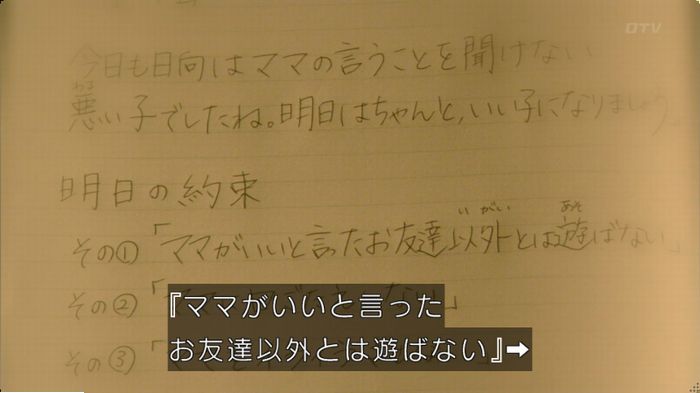 OTV
今日も日向はママの言うことを聞けない
わる
悪い子でしたね。明日はちゃんと、いい子になりましょう。
明日の約束
いがい あそ
その①「ママがいいと言ったお友達以外とは遊ばない」
その②「
『ママがいいと言った
お友達以外とは遊ばない』➡
その③「